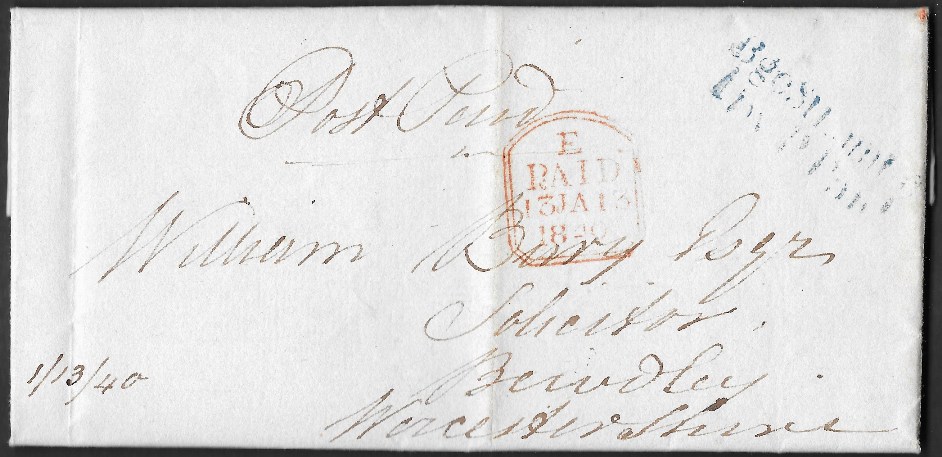 Post Paid
E
PAID
13JA13
1840
William Bury Esqr
Solicitor.
Bewdley.
Worcestershire
1/13/40